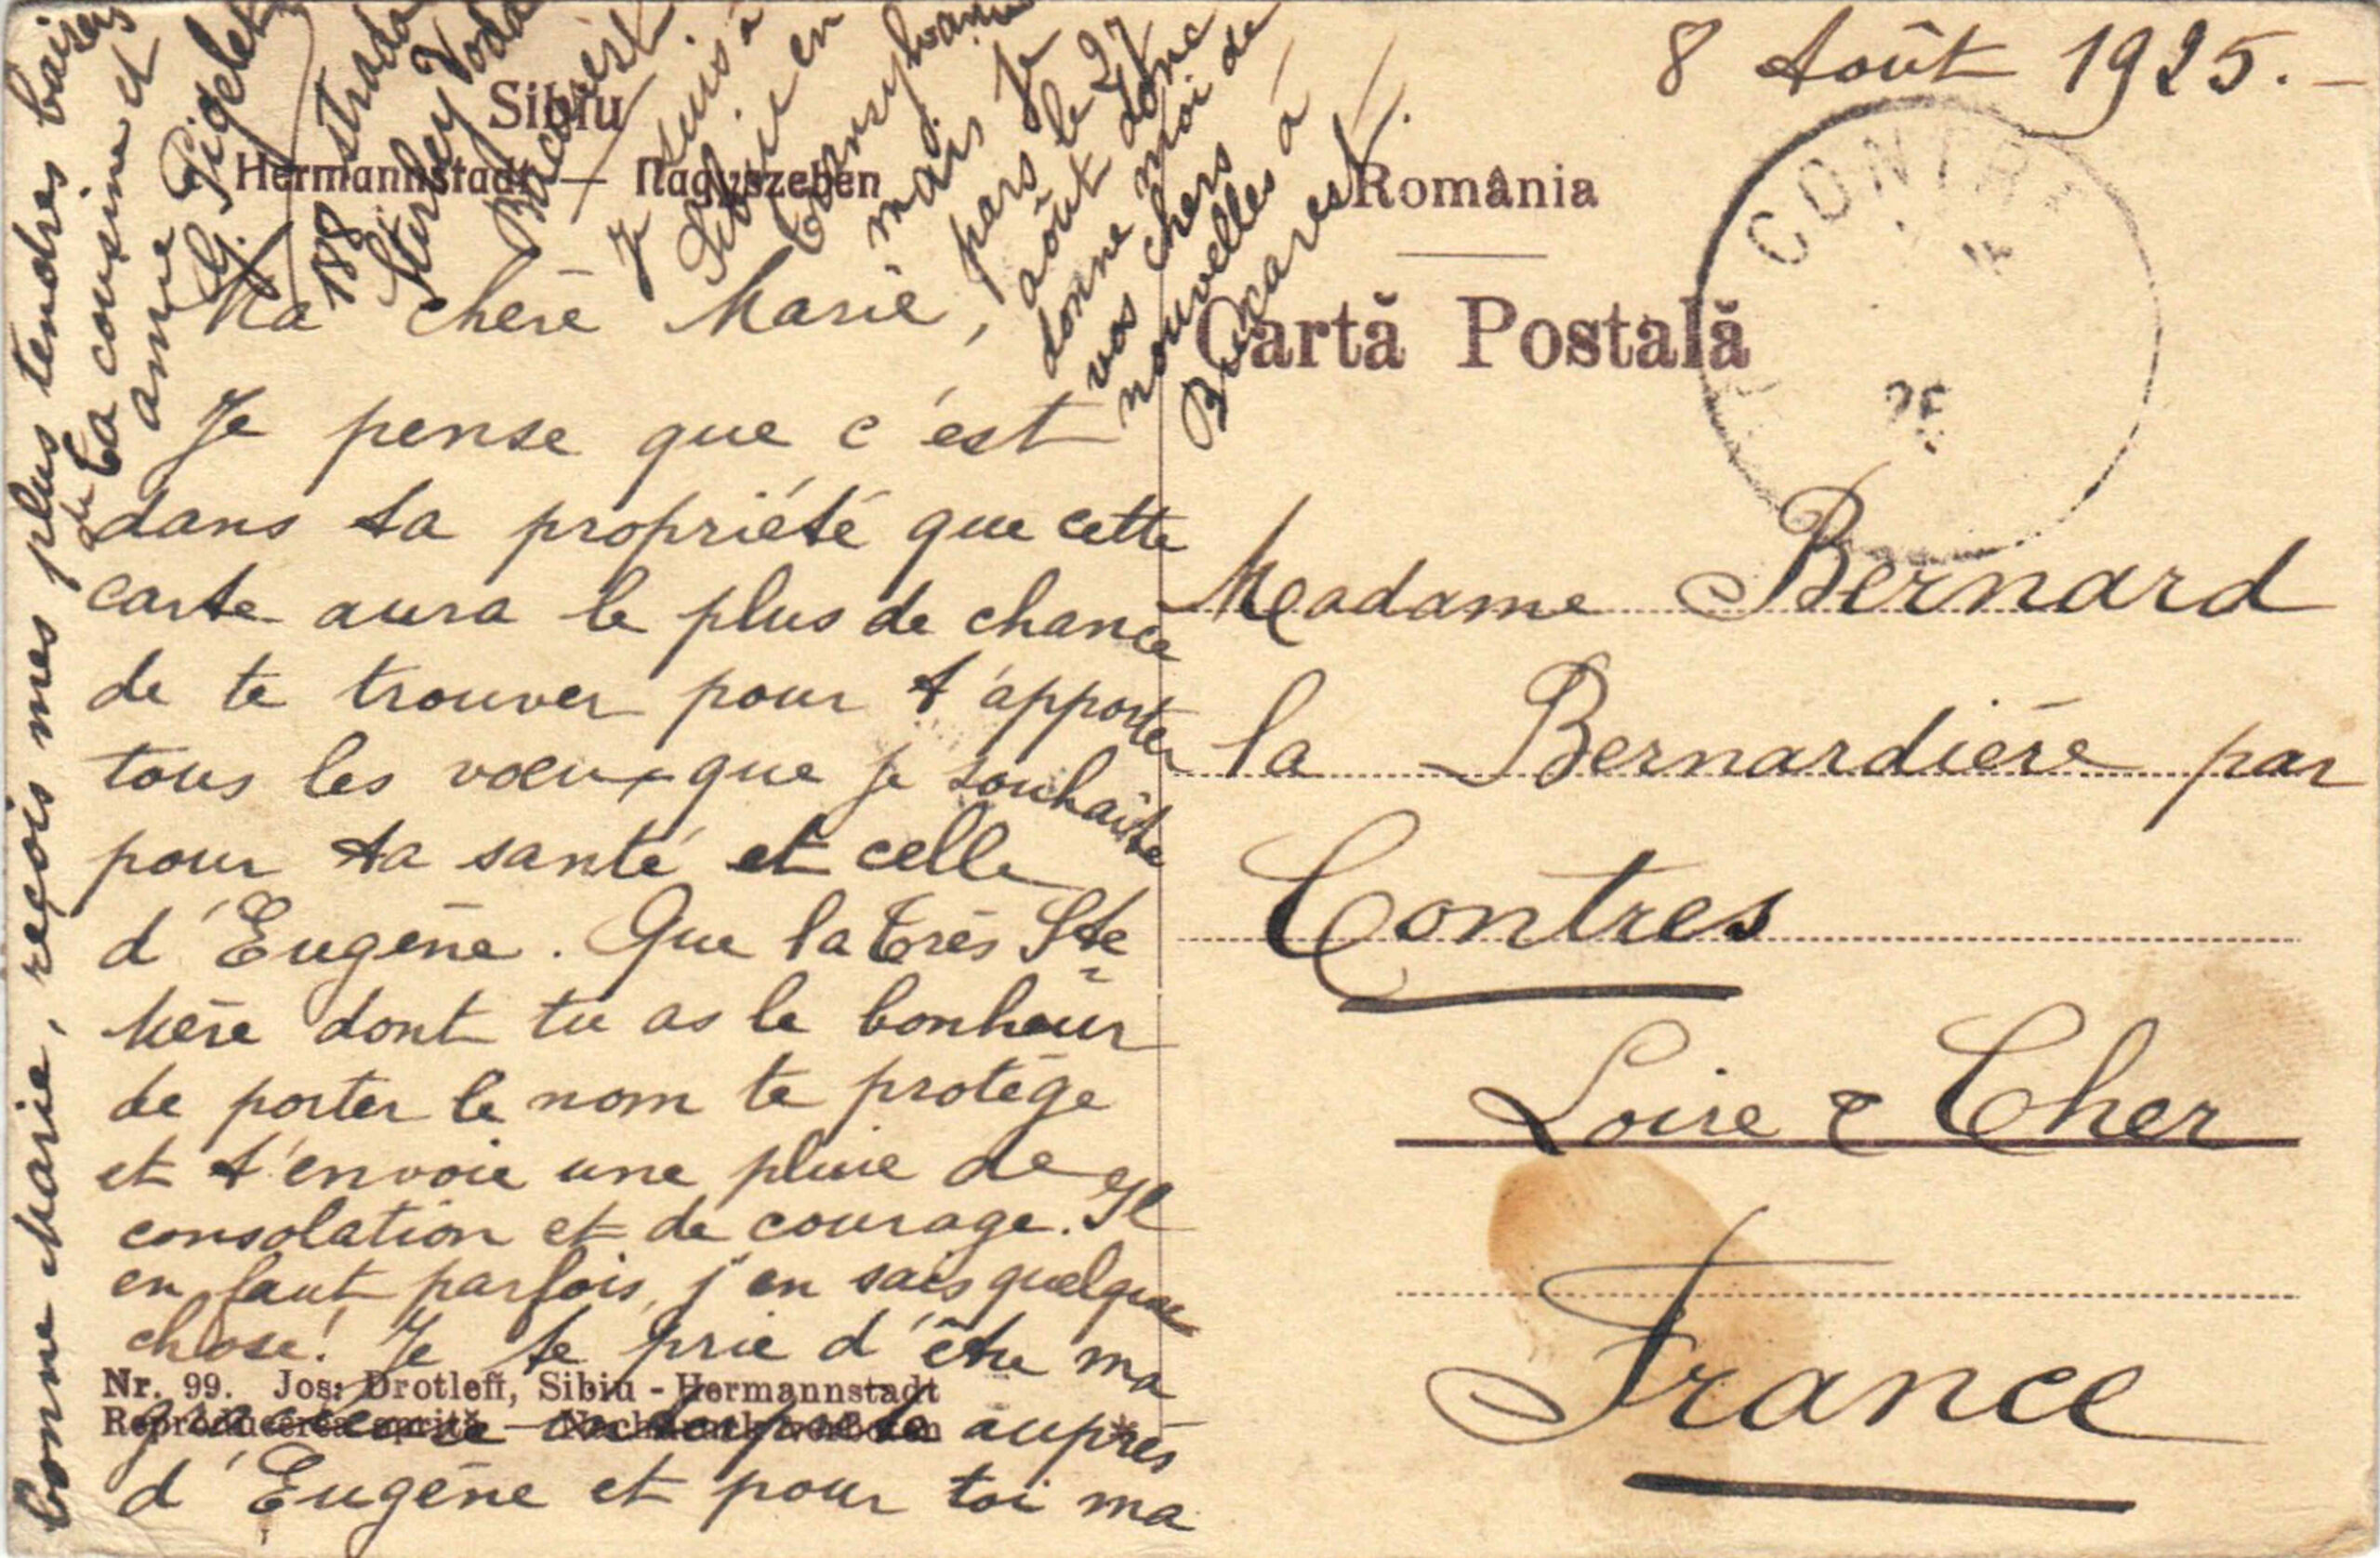 8 Août 1925.-
Sibiu
Hermannstadt — Nagyszeben
România
Cartă Postală
CONTRES
25
Ma chère Marie,
Je pense que c'est
dans ta propriété que cette
carte aura le plus de chance
de te trouver pour t'apporter
tous les vœux que je souhaite
pour ta santé et celle
d'Eugène. Que la très Ste
Mère dont tu as le bonheur
de porter le nom te protège
et t'envoie une pluie de
consolation et de courage. Il
en faut parfois, j'en sais quelque
chose! Je te prie d'être ma
auprès
d'Eugène et pour toi ma
bonne Marie, reçois mes plus tendres baisers
de
ta cousine et
amie
G. Pigelet
188 strada
Stirbey Voda
Bucarest
Je suis à
Sibiu en
Transylvanie
mais je
pars le 27
août donc
donne moi de
vos chers
nouvelles à
Bucarest!
Nr. 99. Jos. Drotleff, Sibiu - Hermannstadt
Madame Bernard
la Bernardière par
Contres
Loire & Cher
France